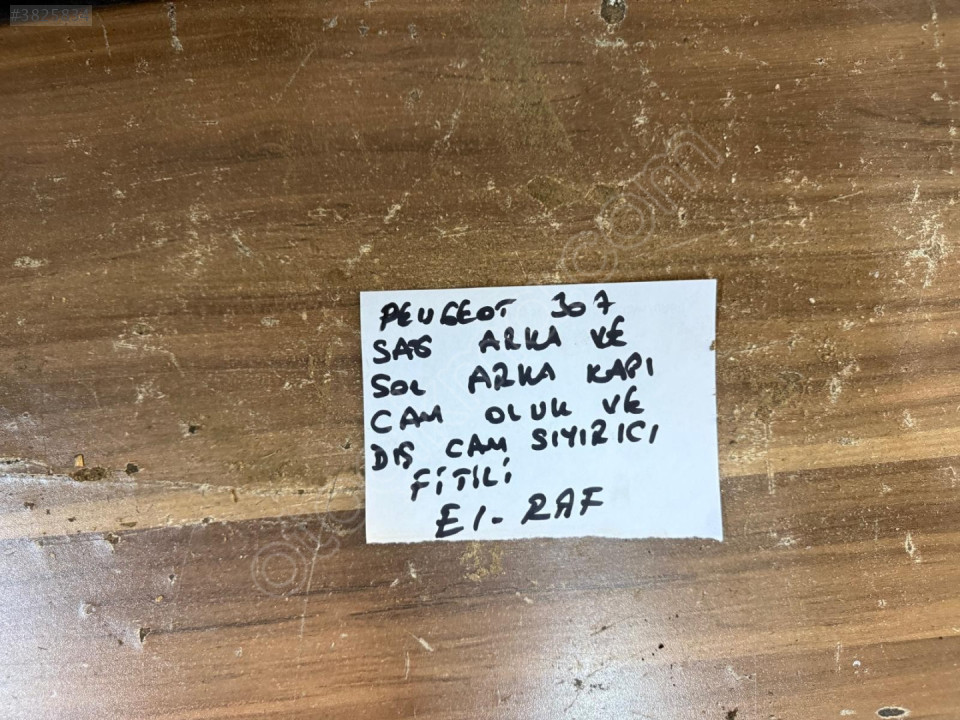 #3825824
PEUGEOT 307
SAĞ ARKA VE
SOL ARKA KAPI
CAM OLUK VE
DIŞ CAM SIYIRICI
FİTİLİ
E1-RAF